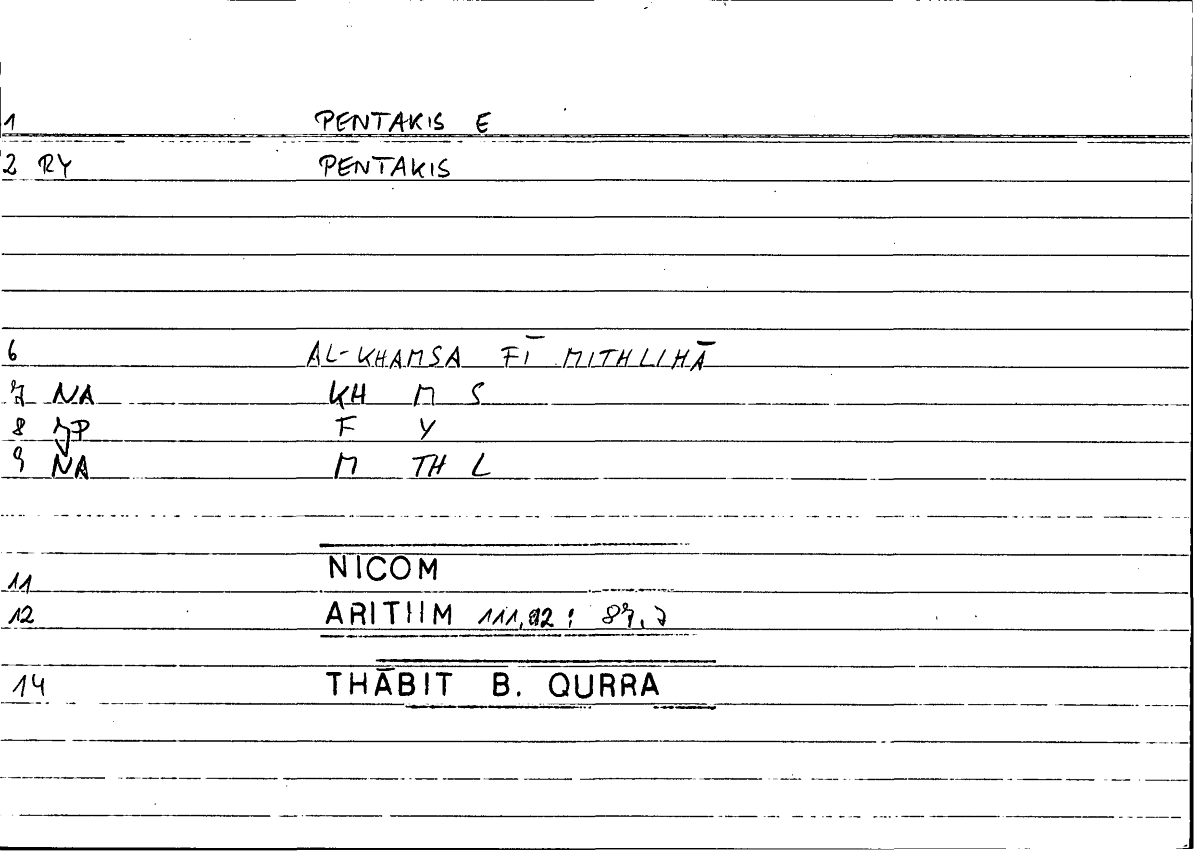 1 PENTAKIS E
2 RY PENTAKIS
6 AL-KHAMSA FĪ MITHLIHĀ
7 NA KH M S
8 JP F Y
9 NA M TH L
11 NICOM
12 ARITHM 111,12 : 87,7
14 THĀBIT B. QURRA